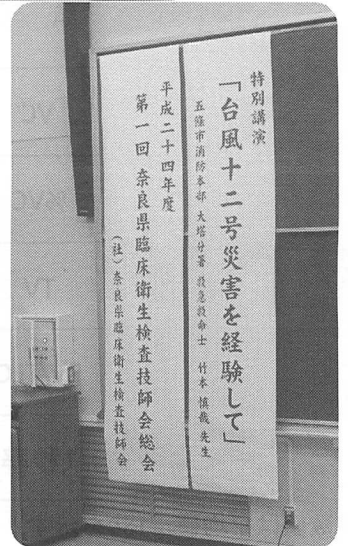 特別講演
「台風十二号災害を経験して」
五條市消防本部 大塔分署 救急救命士 竹本 慎哉 先生
平成二十四年度
第一回 奈良県臨床衛生検査技師会総会
(社)奈良県臨床衛生検査技師会